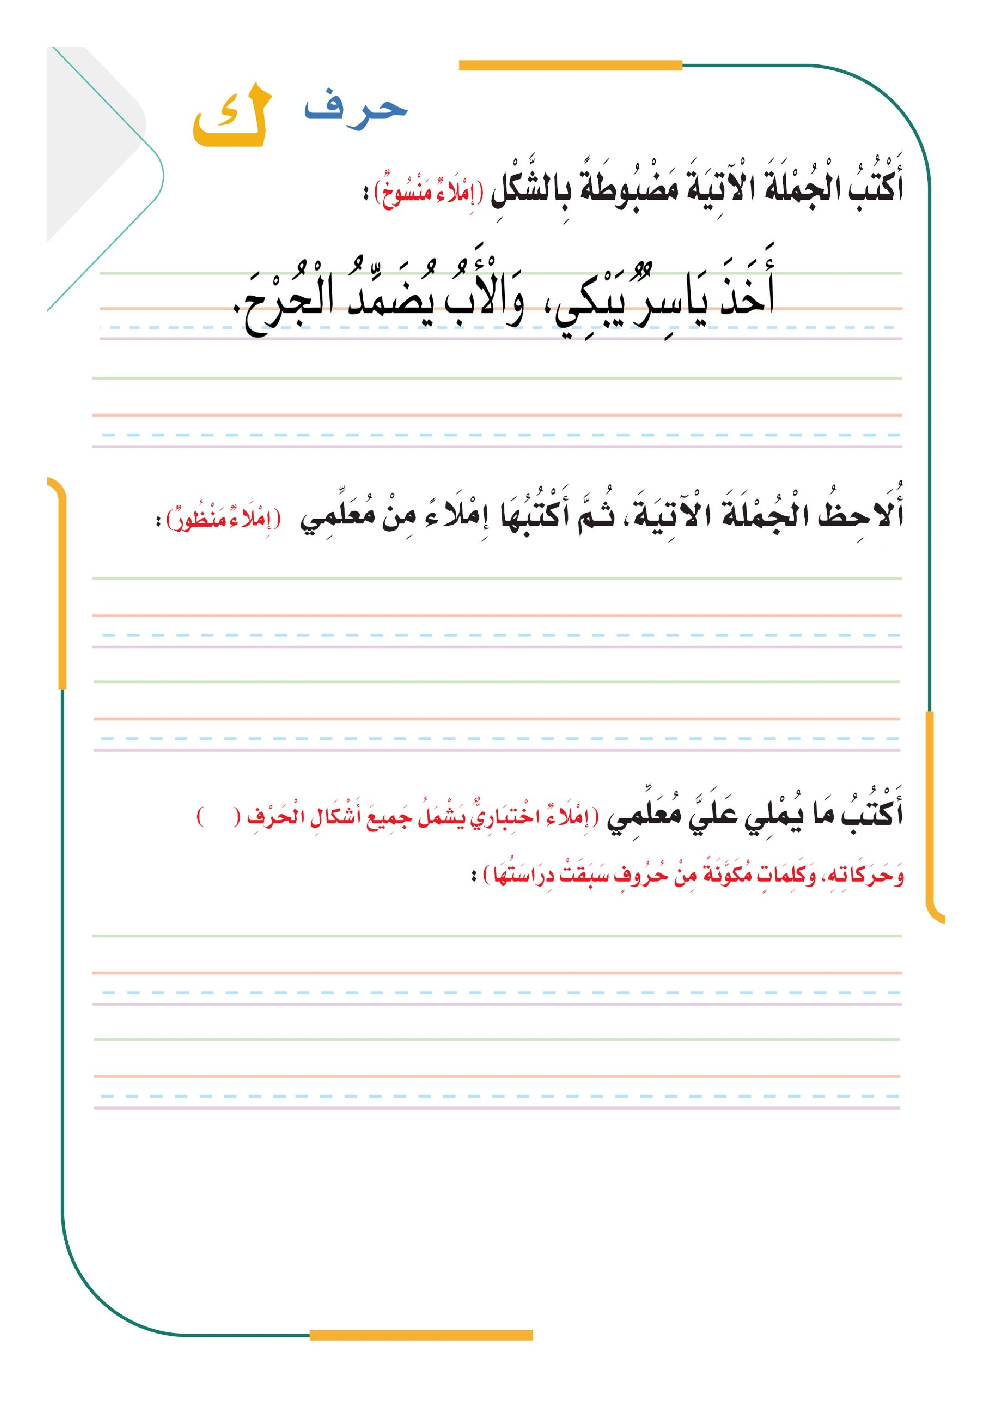 حرف ك
أَكْتُبُ الْجُمْلَةَ الْآتِيَةَ مَضْبُوطَةً بِالشَّكْلِ (إِمْلَاءٌ مَنْسُوخٌ):
أَخَذَ يَاسِرٌ يَبْكِي، وَالْأَبُ يُضَمِّدُ الْجُرْحَ.
أُلَاحِظُ الْجُمْلَةَ الْآتِيَةَ، ثُمَّ أَكْتُبُهَا إِمْلَاءً مِنْ مُعَلِّمِي (إِمْلَاءٌ مَنْظُورٌ):
أَكْتُبُ مَا يُمْلِي عَلَيَّ مُعَلِّمِي (إِمْلَاءٌ اخْتِبَارِيٌّ يَشْمَلُ جَمِيعَ أَشْكَالِ الْحَرْفِ ( )
وَحَرَكَاتِهِ، وَكَلِمَاتٍ مُكَوَّنَةً مِنْ حُرُوفٍ سَبَقَتْ دِرَاسَتُهَا):